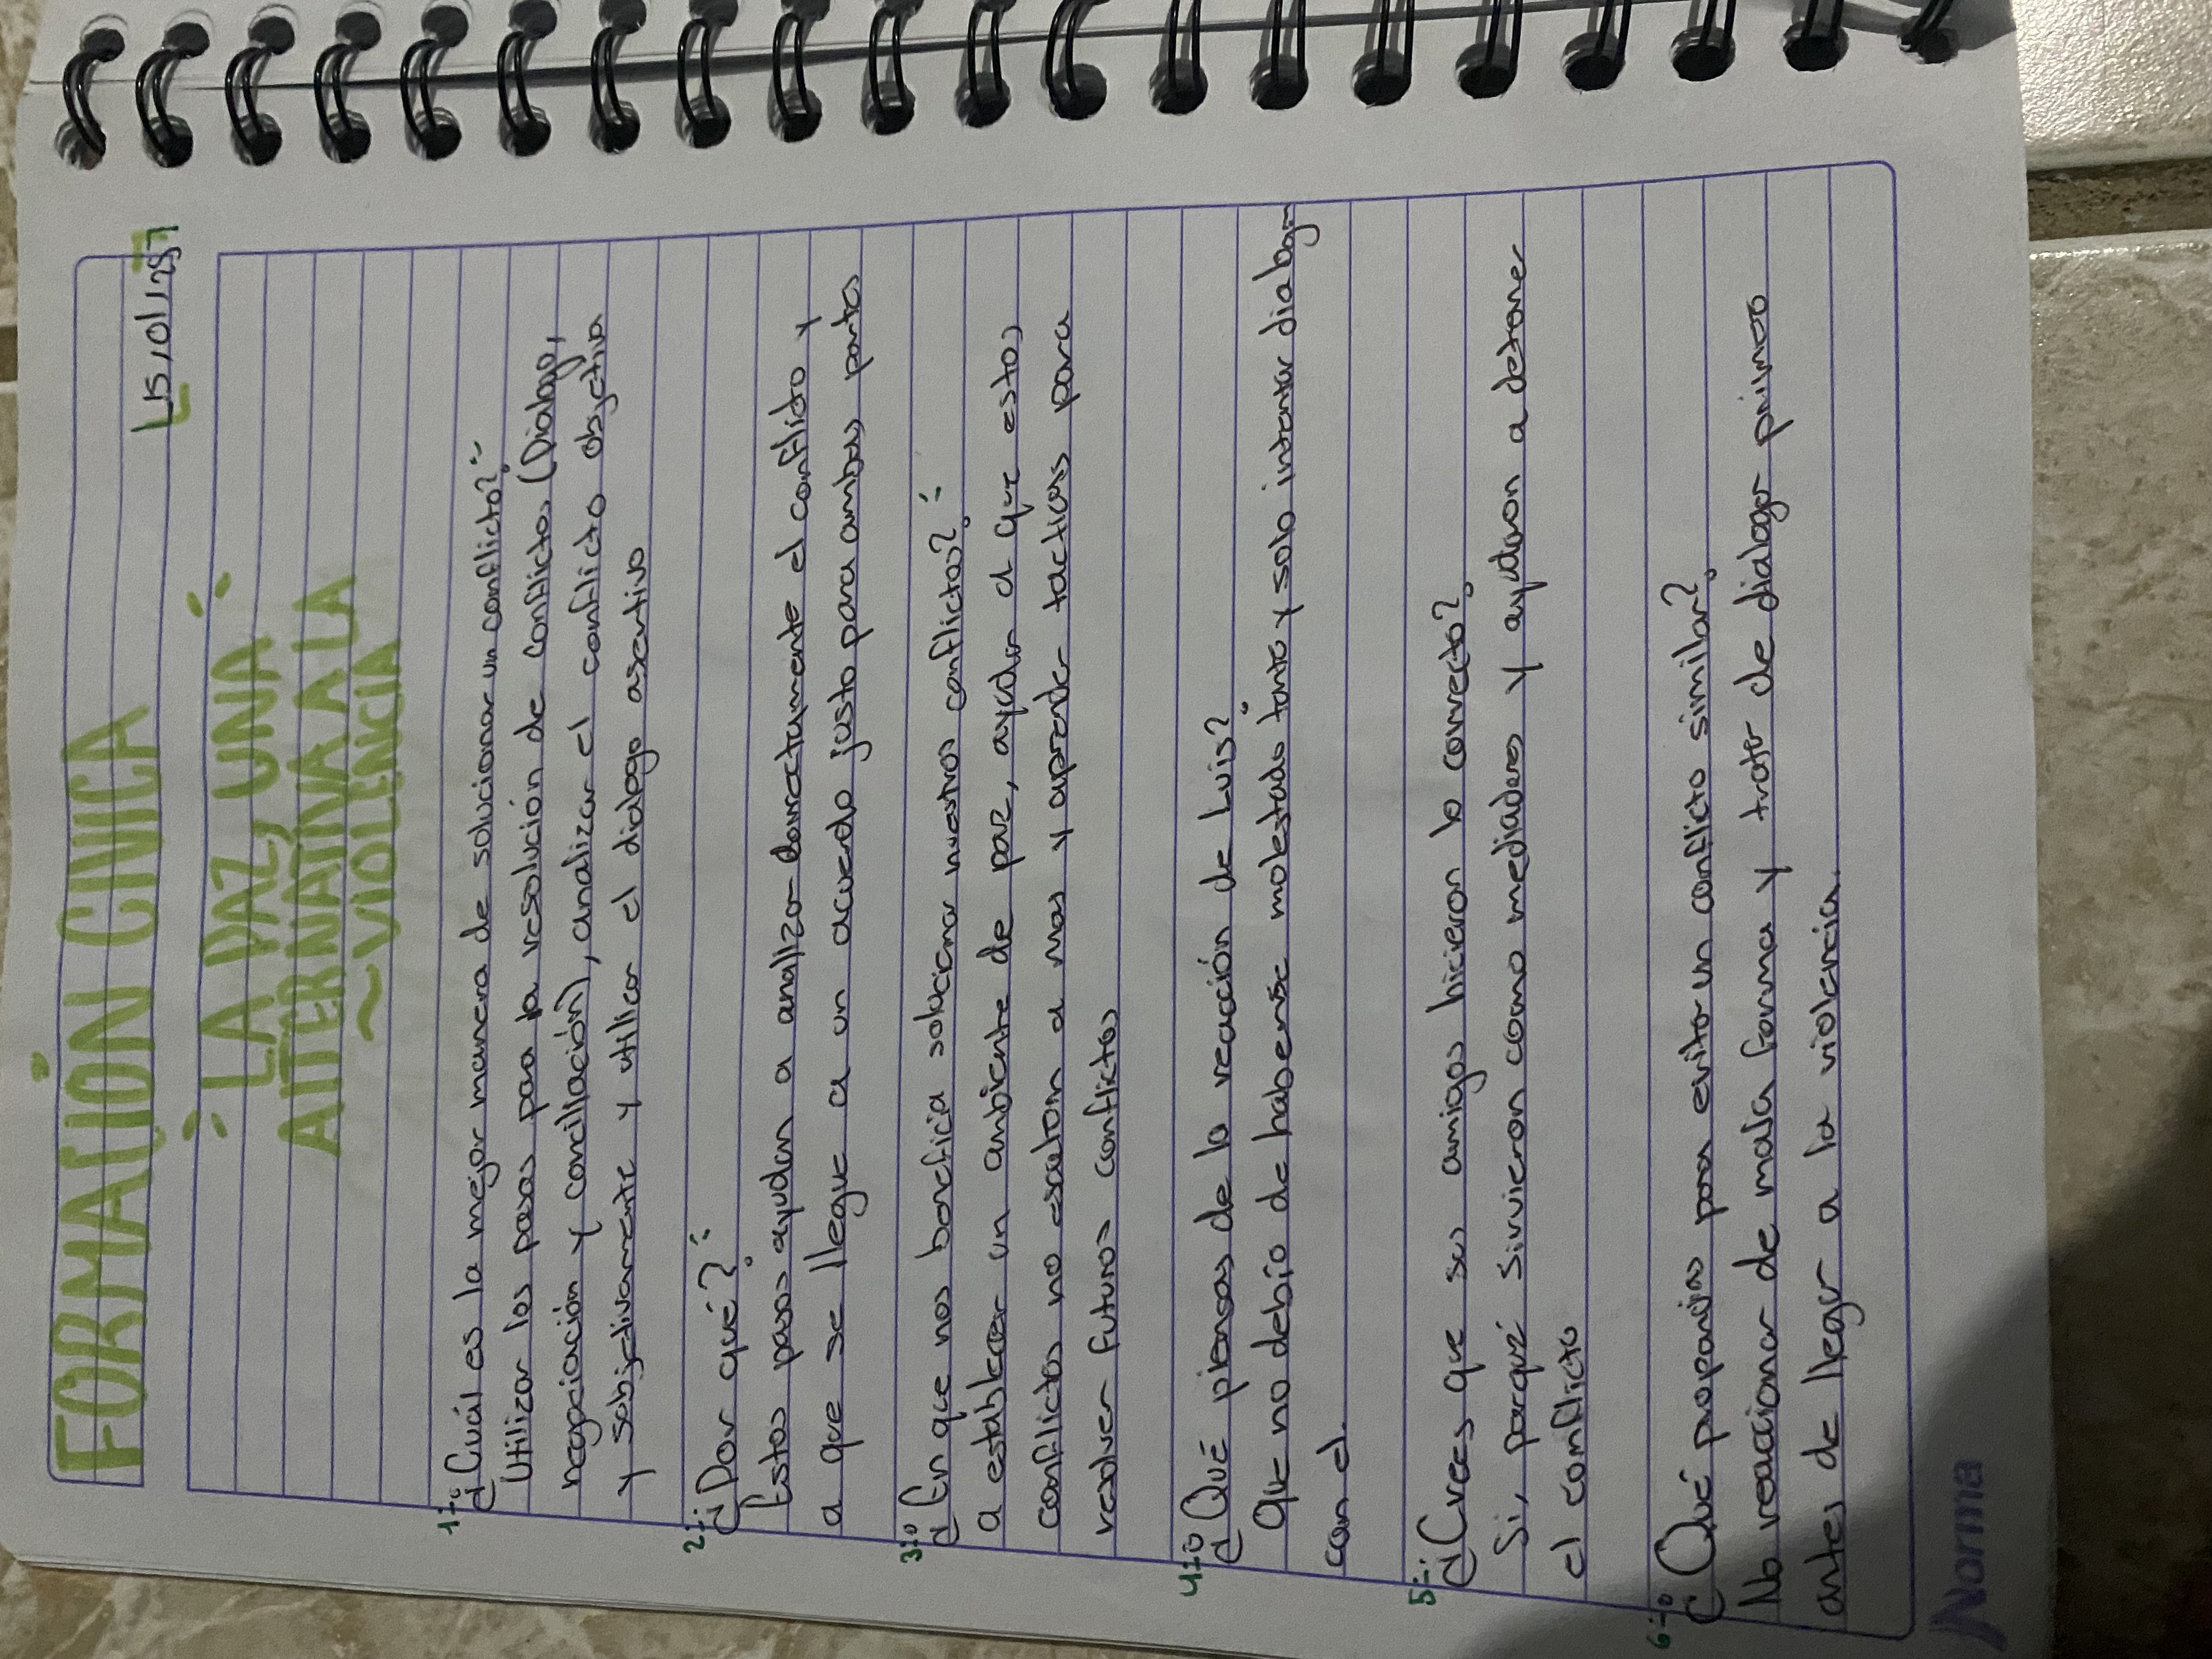 FORMACIÓN CIVICA
15/01/25
LA PAZ, UNA
AlTERNATIVA A LA
~VIOLENCIA
1-. ¿Cuál es la mejor manera de solucionar un conflicto?
Utilizar los pasos para la resolución de conflictos (Dialogo,
negociación y conciliación), analizar el conflicto objectiva
y subjetivamente y utilicar el dialogo asertivo
2-. ¿Por qué?
Estos pasos ayudan a analizar correctamente el conflicto y
a que se llegue a un acuerdo justo para ambas partes
3-. ¿En que nos beneficia solucionar nuestros conflictos?
a establecer un ambiente de paz, ayudar a que estos
conflictos no escalen a mas y aprender tacticas para
resolver futuros conflictos
4-. ¿Qué piensas de la reacción de Luis?
Que no debio de haberse molestado tanto y solo intentar dialogar
con el.
5-. ¿Crees que sus amigos hicieron lo correcto?
Si, porqué sirvieron como mediadores y ayudaron a detener
el conflicto
6-. ¿Qué propones para evitar un conflicto similar?
No reaccionar de mala forma y tratar de dialogar primero
antes de llegar a la violencia.
Norma